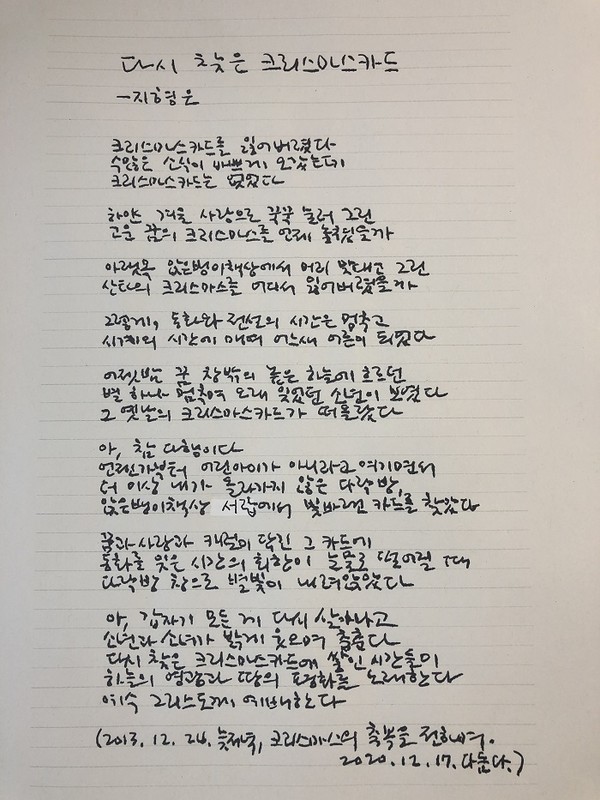 다시 찾은 크리스마스카드
-지형은
크리스마스카드를 잃어버렸다
수많은 소식이 바쁘게 오갔는데
크리스마스카드는 없었다
하얀 겨울 사랑으로 꾹꾹 눌러 그린
고운 꿈의 크리스마스를 언제 놓쳤을까
아랫목 앉은뱅이책상에서 머리 맞대고 그린
산타의 크리스마스를 어디서 잃어버렸을까
그렇게, 동화와 전설의 시간은 멈추고
시계의 시간에 매여 어느새 어른이 되었다
어젯밤 꿈 창밖의 높은 하늘에 흐르던
별 하나 멈추며 오래 잊었던 소년이 보였다
그 옛날의 크리스마스카드가 떠올랐다
아, 참 다행이다
언젠가부터 어린아이가 아니라고 여기면서
더 이상 내가 올라가지 않은 다락방,
앉은뱅이책상 서랍에서 빛바랜 카드를 찾았다
꿈과 사랑과 캐럴이 담긴 그 카드에
동화를 잊은 시간의 회한이 눈물로 떨어질 때
다락방 창으로 별빛이 내려앉았다
아, 갑자기 모든 게 다시 살아나고
소년과 소녀가 밝게 웃으며 춤춘다
다시 찾은 크리스마스카드에 쌓인 시간들이
하늘의 영광과 땅의 평화를 노래한다
예수 그리스도께 예배한다
(2013. 12. 24. 늦저녁, 크리스마스의 축복을 전하며.
2020. 12. 17. 다듬다.)